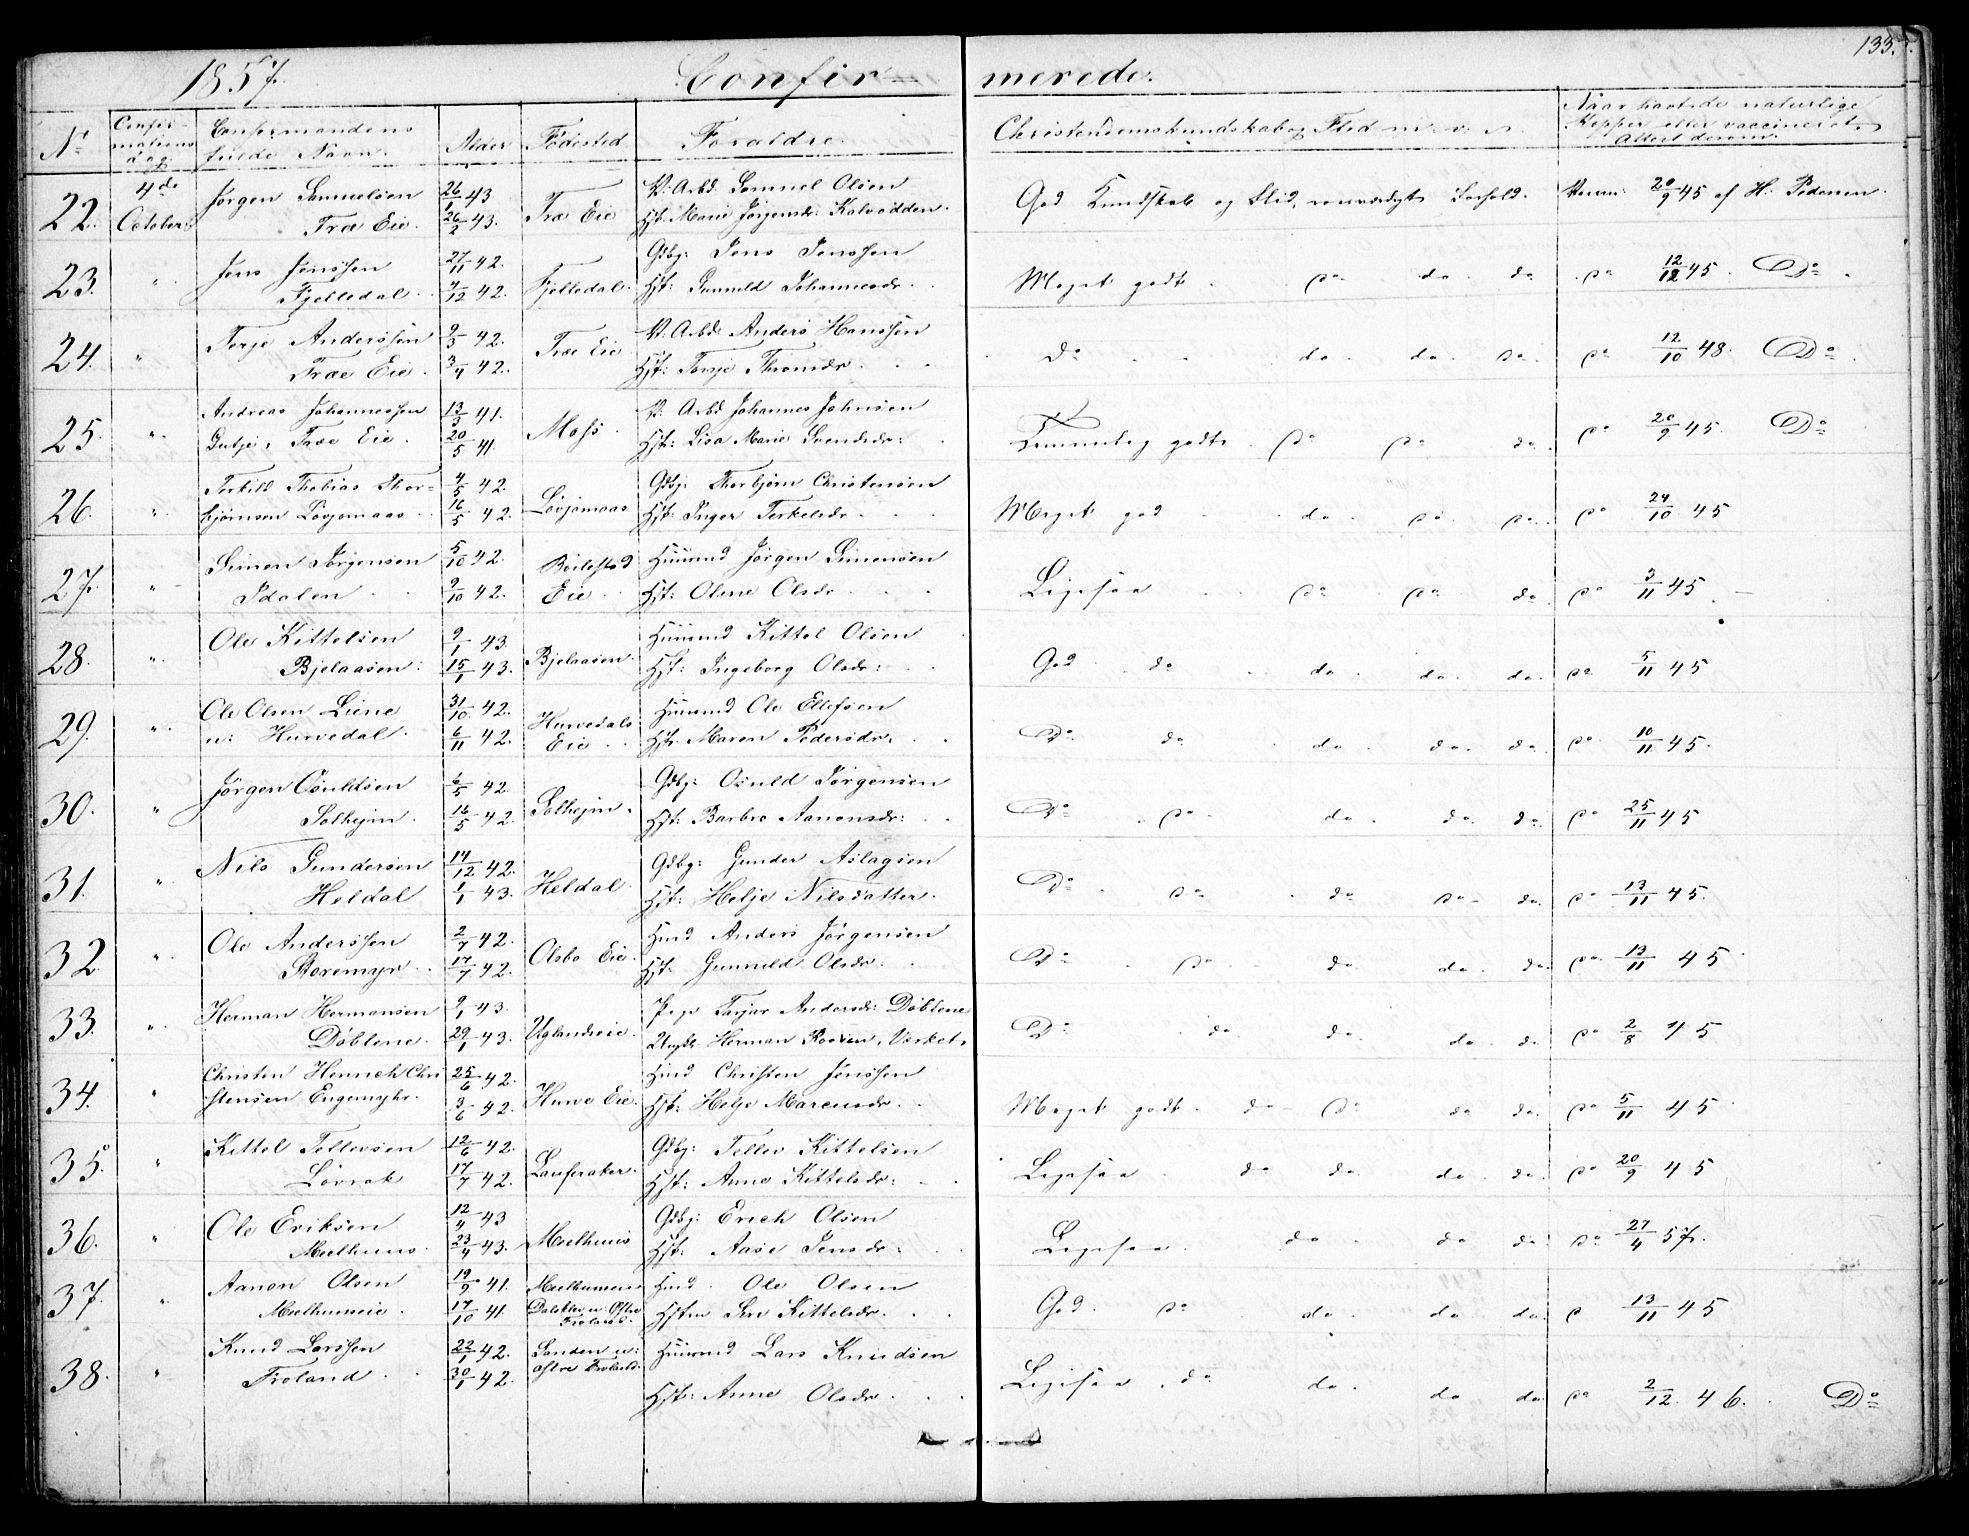 133.
1857. Confirmerede.
No Confirmations dag. Confirmandens fulde Navn. Alder Fødested Forældre. Christendomskundskab og Flid m. v. Naar havt de naturlige Kopper eller vaccineret. Attest derom.
22. 4de October Jørgen Samuelsen Træ Eie. 26/1 43. 26/2 43. Træ Eie Samuel Olsen Hst. Marie Jørgensdr. Kalvodden. God Kundskab og Flid, Forhold. 20/9 45 af H. Pedersen.
23. " Jens Jensen Fjelledal 27/11 42. 4/12 42. Fjelledal. Gdbg: Jens Jenssen Hst: Gunuld Johannesdr. Meget godt do do do do 12/12 45. Do
24. " Terje Anderssen Træ Eie. 9/3 42. 3/4 42. Træ Eie Anders Hanssen Hst: Terje Thomsdr. Do do do do do 12/10 48. Do
25. " Andreas Johannessen Træ Eie. 13/3 41. 20/5 41. Moss. Johannes Johnsen Hst: Lisa Marie Svendsdr: Temmelig godt. do do do do 20/9 45. Do
26. " Terkild Thobias Thorbjørnsen Løvjomaas 4/5 42. 16/5 42. Løvjomaas Gdbg: Thorbjørn Christensen Hst: Inger Terkelsdr. Meget god do do do do 24/10 45
27. " Simon Jørgensen Idalen 5/10 42. 9/10 42. Bøilestad Eie Huusmd Jørgen Simonsen Hst: Olene Olsdr Ligesaa do do do do 3/11 45.
28. " Ole Kittelsen Bjelaasen: 9/1 43. 15/1 43. Bjelaasen. Huusmd Kittel Olsen Hst: Ingeborg Olsdr: God do do do do do 5/11 45
29. " Ole Olsen Liene u: Hurvedal. 31/10. 42. 6/11 42. Hurvedals Eie Huusmd Ole Ellefsen Hst. Maren Pedersdr. Do do do do do do 10/11 45.
30. " Jørgen Osuldsen Solhejm. 6/5 42. 16/5 42. Solhejm. Gdbg: Osuld Jørgensen Hst: Barbro Aanonsdr: Do do do do do do 25/11 45
31. " Nils Gundersen Heldal 14/12 42. 1/1 43. Heldal. Gdbg: Gunder Aslagsen Hst: Helje Nilsdatter. Do do do do do do 13/11 45.
32 " Ole Anderssen Storemyr. 2/7 42. 17/7 42. Olsbo Eie. Hmd Anders Jørgensen Hst: Gunnild Olsdr: Do do do do do do 13/11 45
33. " Herman Hermansen Døblene. 9/1 43. 29/1 43. Uglandseie. Pige Tarjer Andersdr: Døblene Ungkr. Herman Værket. Do do do do do do 2/8 45
34. " Christen Henrich Christensen Engemyhr. 25/6 42. 3/6 42. Hurve Eie. Hmd Christen Jenssen Hst: Helje Marcusdr. Meget godt. do do do do do 5/11 45
35. " Kittel Tellevsen Løvrak 12/6 42. 17/7 42. Lauvraker. Gdbg: Tellev Kittelsen Hst: Anne Kittelsdr: Ligesaa do do do do do 20/9 45
36. " Ole Eriksen Mælhuus. 12/4 43 23/4 43. Mælhuus Gdbg: Erich Olsen Hst: Aase Jensdr: Ligesaa. do do do do 27/4 57.
37. " Aanon Olsen Mælhuuseie. 19/9 41. 17/10 41. Mælhuuseie Dalekler u. Østre Froland. Hmd. Ole Olsen Hstru Siri Kittelsdr. God. do do do do 13/11 45
38. " Knud Larssen Froland. 22/1 42. 30/1 42. Sanden u: østre Froland. Huusmd Lars Knudsen Hst: Anne Olsdr. Ligesaa. do do do do do 2/12. 46. Do